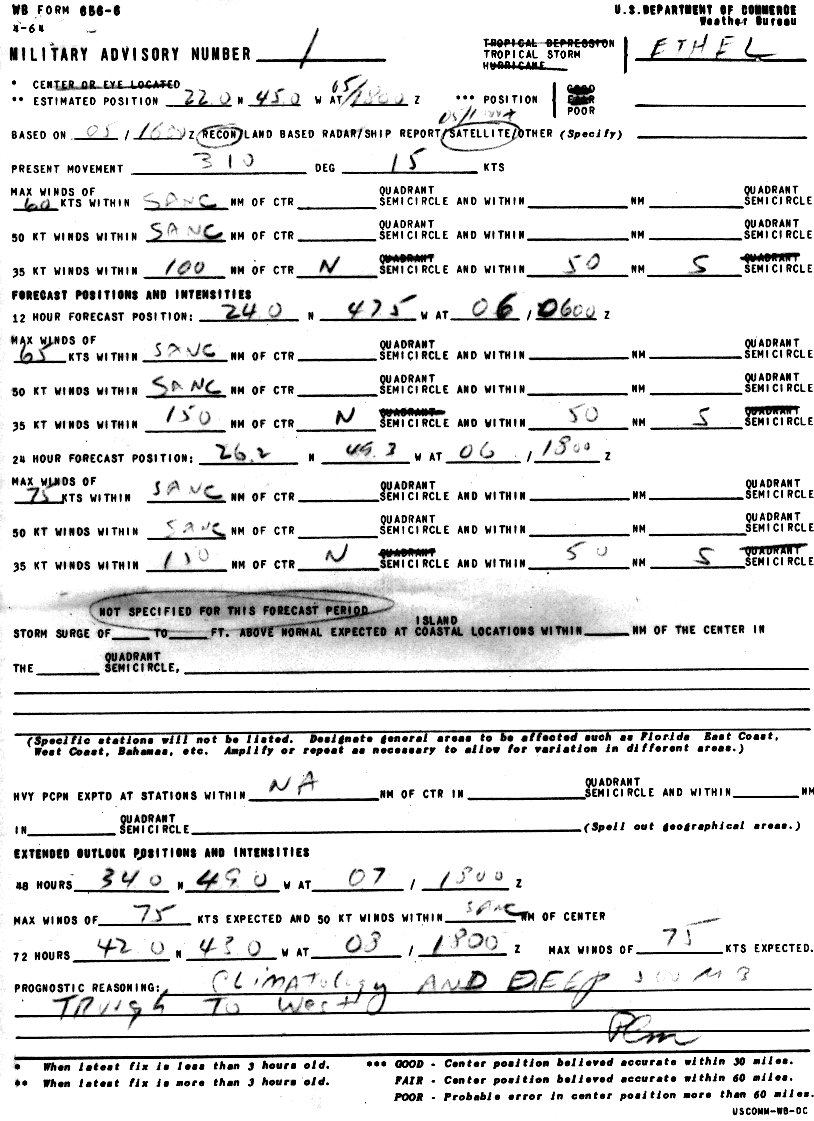 WB FORM 656-6
4-64
U.S. DEPARTMENT OF COMMERCE
Weather Bureau
MILITARY ADVISORY NUMBER 1
TROPICAL DEPRESSION
TROPICAL STORM
HURRICANE
ETHEL
* CENTER OR EYE LOCATED
** ESTIMATED POSITION 22.0 N 45.0 W AT 05/1800 Z *** POSITION
GOOD
FAIR
POOR
BASED ON 05 / 1600 Z RECON/LAND BASED RADAR/SHIP REPORT/SATELLITE/OTHER (Specify)
PRESENT MOVEMENT 310 DEG 15 KTS
MAX WINDS OF QUADRANT QUADRANT
60 KTS WITHIN SANC NM OF CTR SEMICIRCLE AND WITHIN NM SEMICIRCLE
QUADRANT QUADRANT
50 KT WINDS WITHIN SANC NM OF CTR SEMICIRCLE AND WITHIN NM SEMICIRCLE
QUADRANT QUADRANT
35 KT WINDS WITHIN 100 NM OF CTR N SEMICIRCLE AND WITHIN 50 NM S SEMICIRCLE
FORECAST POSITIONS AND INTENSITIES
12 HOUR FORECAST POSITION: 24.0 N 47.5 W AT 06 / 0600 Z
MAX WINDS OF QUADRANT QUADRANT
65 KTS WITHIN SANC NM OF CTR SEMICIRCLE AND WITHIN NM SEMICIRCLE
QUADRANT QUADRANT
50 KT WINDS WITHIN SANC NM OF CTR SEMICIRCLE AND WITHIN NM SEMICIRCLE
QUADRANT QUADRANT
35 KT WINDS WITHIN 150 NM OF CTR N SEMICIRCLE AND WITHIN 50 NM S SEMICIRCLE
24 HOUR FORECAST POSITION: 26.2 N 49.3 W AT 06 / 1800 Z
MAX WINDS OF QUADRANT QUADRANT
75 KTS WITHIN SANC NM OF CTR SEMICIRCLE AND WITHIN NM SEMICIRCLE
QUADRANT QUADRANT
50 KT WINDS WITHIN SANC NM OF CTR SEMICIRCLE AND WITHIN NM SEMICIRCLE
QUADRANT QUADRANT
35 KT WINDS WITHIN NM OF CTR N SEMICIRCLE AND WITHIN 50 NM S SEMICIRCLE
NOT SPECIFIED FOR THIS FORECAST PERIOD
ISLAND
STORM SURGE OF TO FT. ABOVE NORMAL EXPECTED AT COASTAL LOCATIONS WITHIN NM OF THE CENTER IN
QUADRANT
THE SEMICIRCLE,
(Specific stations will not be listed. Designate general areas to be affected such as Florida East Coast,
West Coast, Bahamas, etc. Amplify or repeat as necessary to allow for variation in different areas.)
QUADRANT
HVY PCPN EXPTD AT STATIONS WITHIN NA NM OF CTR IN SEMICIRCLE AND WITHIN NM
QUADRANT
IN SEMICIRCLE (Spell out geographical areas.)
EXTENDED OUTLOOK POSITIONS AND INTENSITIES
48 HOURS 34.0 N 49.0 W AT 07 / 1800 Z
MAX WINDS OF 75 KTS EXPECTED AND 50 KT WINDS WITHIN SANC NM OF CENTER
72 HOURS 42.0 N 43.0 W AT 08 / 1800 Z MAX WINDS OF 75 KTS EXPECTED.
PROGNOSTIC REASONING: CLIMATOLOGY AND DEEP 500 MB
TROUGH TO WEST
* When latest fix is less than 3 hours old.
** When latest fix is more than 3 hours old.
*** GOOD - Center position believed accurate within 30 miles.
FAIR - Center position believed accurate within 60 miles.
POOR - Probable error in center position more than 60 miles.
USCOMM-WB-DC